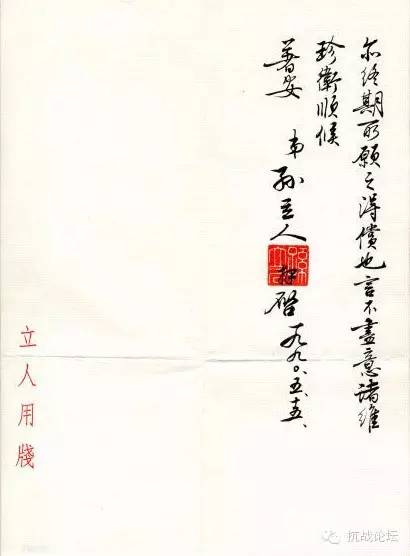 亦終期所願之得償也言不盡意諸維
珍衛順候
安 弟孫立人啓 一九九○.五.十五.
立人用牋
抗战论坛